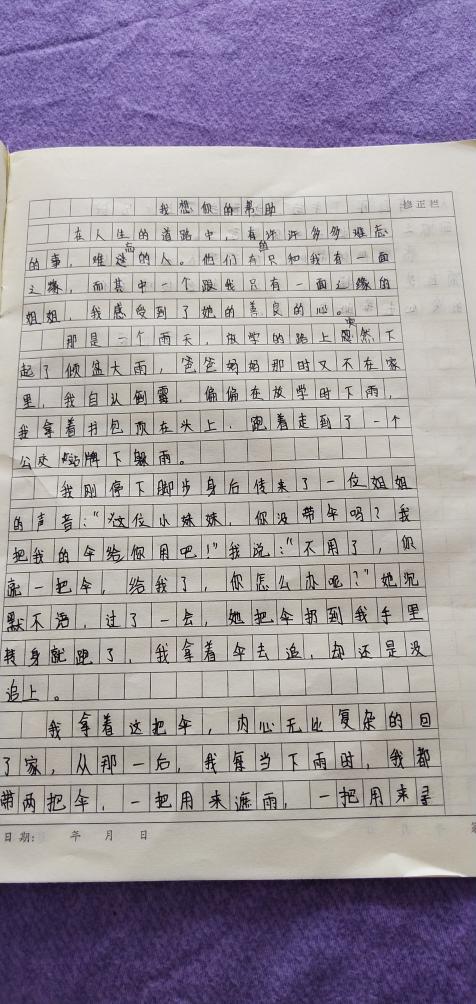 我想你的帮助
修正栏
在人生的道路中，有许许多多难忘
的事，难忘的人。他们有的只和我有一面
之缘，而其中一个跟我只有一面之缘的
姐姐，我感受到了她的善良的心。
那是一个雨天，放学的路上突然下
起了倾盆大雨，爸爸妈妈那时又不在家
里，我自认倒霉，偏偏在放学时下雨，
我拿着书包顶在头上，跑着走到了一个
公交站牌下躲雨。
我刚停下脚步身后传来了一位姐姐
的声音："这位小妹妹，你没带伞吗？我
把我的伞给你用吧！"我说："不用了，你
就一把伞，给我了，你怎么办呢？"她沉
默不语，过了一会，她把伞扔到我手里
转身就跑了，我拿着伞去追，却还是没
追上。
我拿着这把伞，内心无比复杂的回
了家，从那一后，我每当下雨时，我都
带两把伞，一把用来遮雨，一把用来寻
日期： 年 月 日